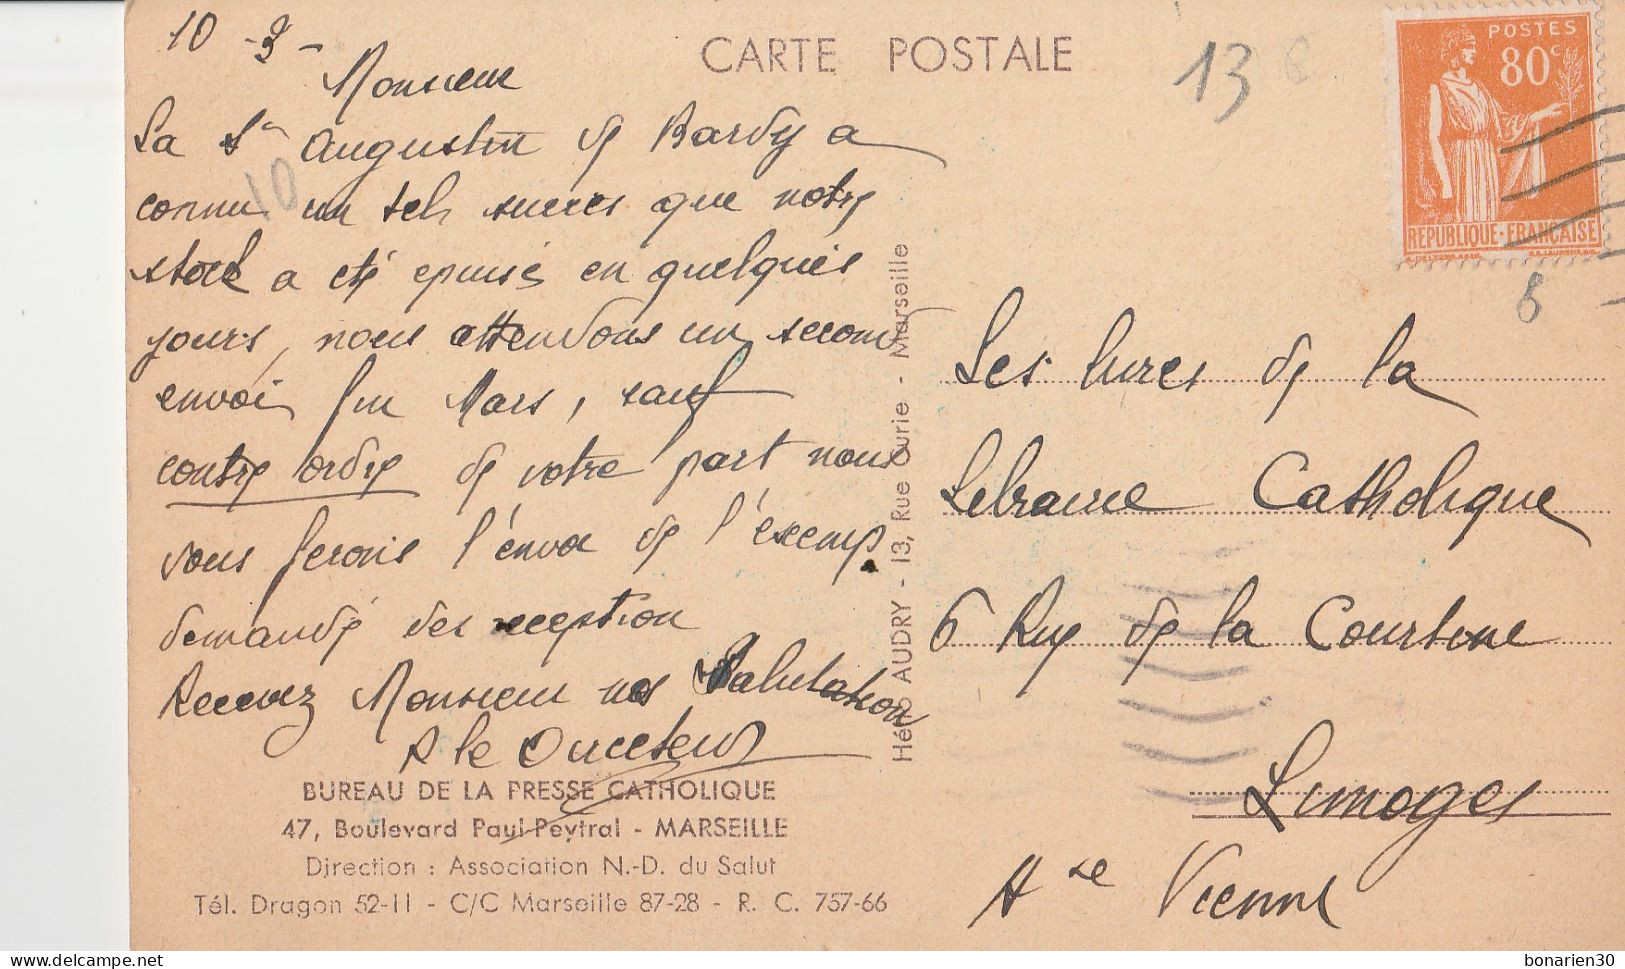 10 - 3 -
CARTE POSTALE
13
POSTES
80c
REPUBLIQUE-FRANÇAISE
Monsieur
Sa St Augustin de Bardy a
connu un tel succès que notre
10
stock a été épuisé en quelques
jours, nous attendons un second
envoi fin Mars, sauf
contre ordre de votre part nous
vous ferons l'envoi de l'exemp.
demandé dès reception
Recevez Monsieur nos Salutation
le Directeur
BUREAU DE LA PRESSE CATHOLIQUE
47, Boulevard Paul-Peytral - MARSEILLE
Direction : Association N.-D. du Salut
Tél. Dragon 52-11 - C/C Marseille 87-28 - R. C. 757-66
Hélio AUDRY - 13, Rue Curie - Marseille
Les livres de la
Librairie Catholique
6 Rue de la Courtine
Limoges
Hte Vienne
delcampe.net
bonarien30